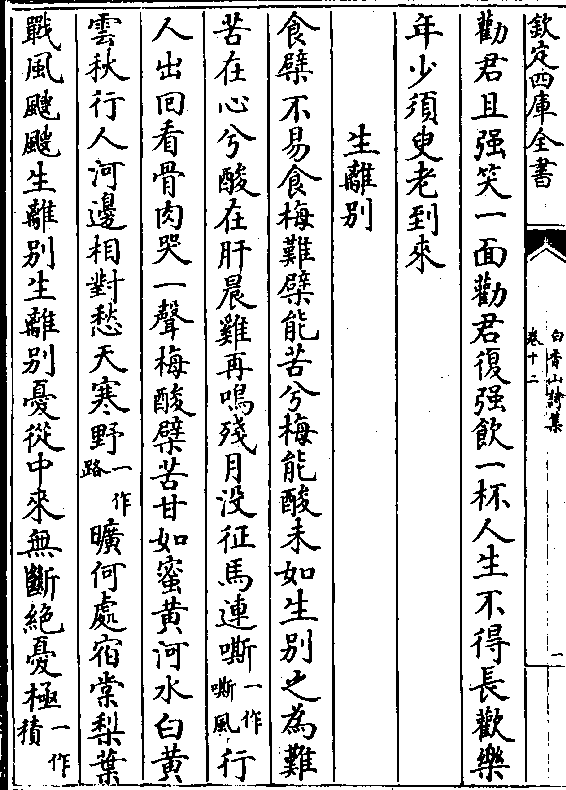 欽定四庫全書
白香山詩集
卷十二
一
勸君且强笑一面勸君復强飲一杯人生不得長歡樂
年少須臾老到來
生離别
食檗不易食梅難檗能苦兮梅能酸未如生别之為難
苦在心兮酸在肝晨雞再鳴殘月没征馬連嘶一作嘶風行
人出回看骨肉哭一聲梅酸檗苦甘如蜜黄河水白黄
雲秋行人河邊相對愁天寒野一作路曠何處宿棠梨葉
戰風颼颼生離别生離别憂從中來無斷絶憂極一作積